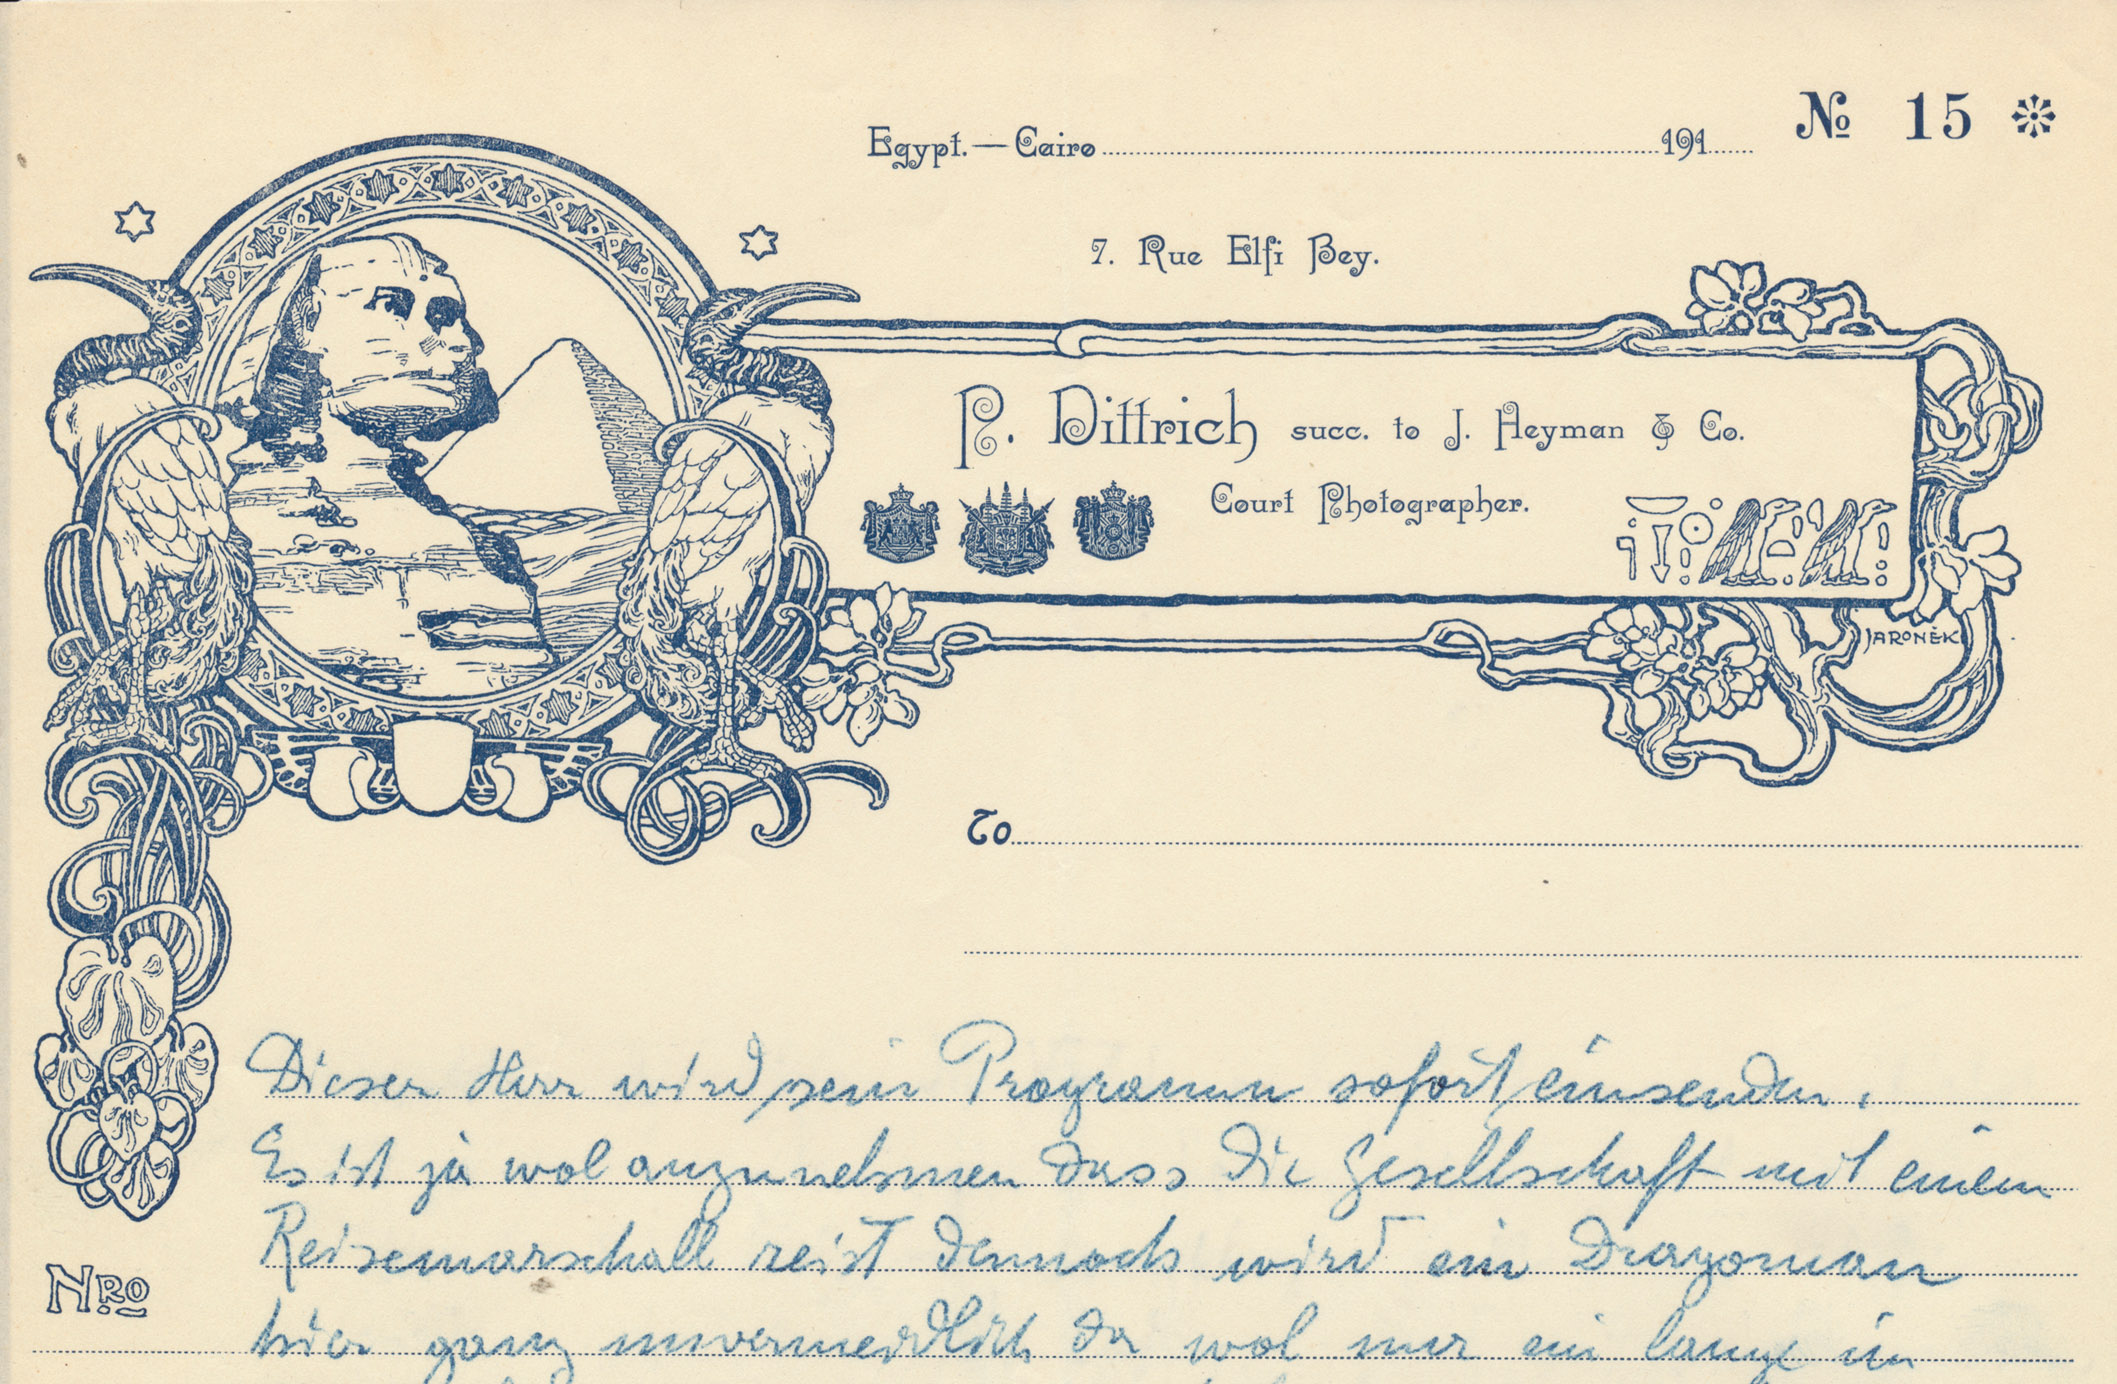 № 15
Egypt.—Cairo 191
7. Rue Elfi Bey.
P. Dittrich succ. to J. Heyman & Co.
Court Photographer.
JARONĚK
To
Dieser Herr wird sein Programm sofort einsenden.
Es ist ja wol anzunehmen dass die Gesellschaft mit einem
Reisemarschall reist dennoch wird ein Dragoman
NRO
hier ganz unvermeidlich da wol nur ein lange im